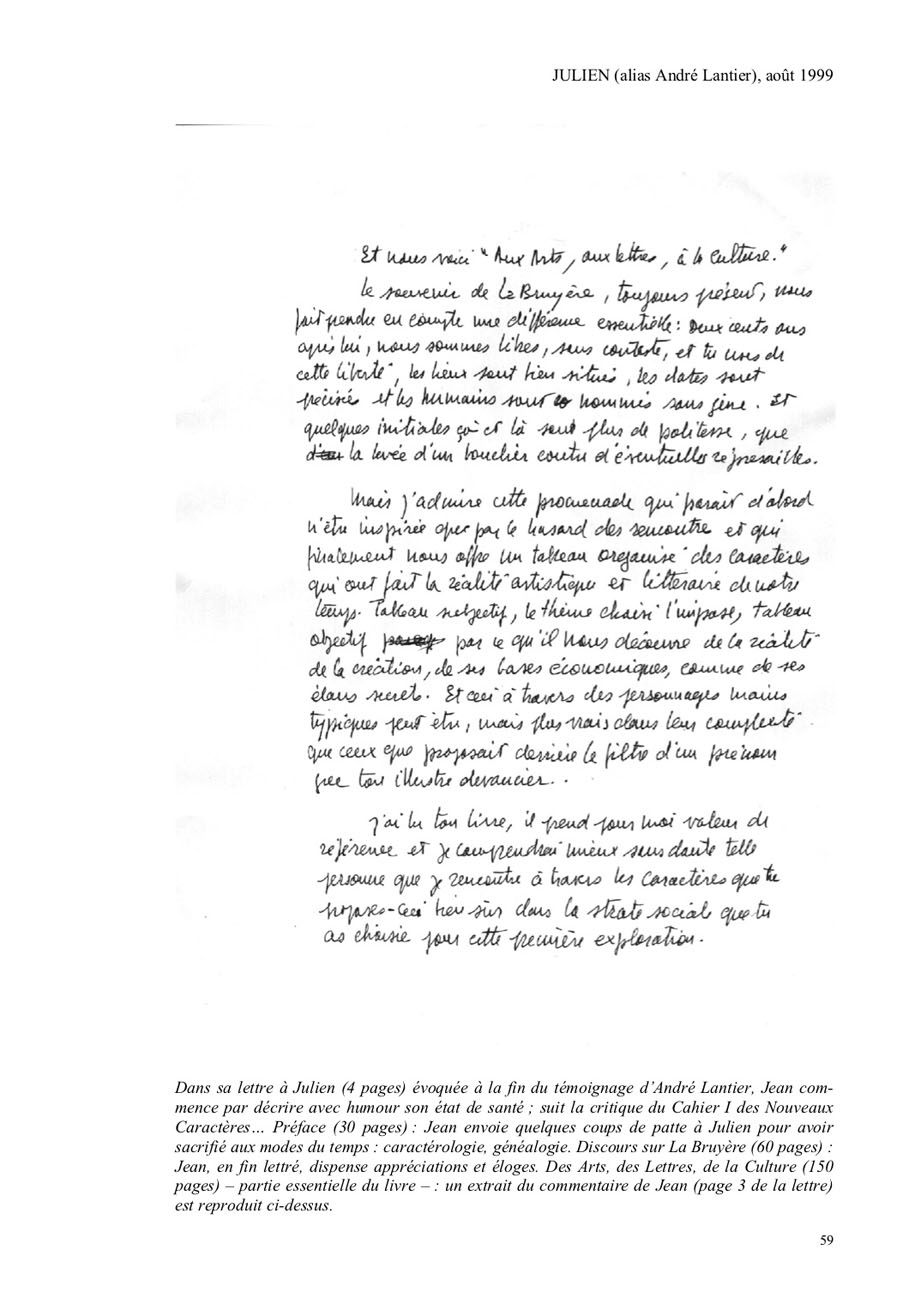 JULIEN (alias André Lantier), août 1999
Et nous voici "Aux Arts, aux lettres, à la Culture."
Le souvenir de La Bruyère, toujours présent, nous
fait prendre en compte une différence essentielle : Deux cents ans
après lui, nous sommes libres, sans conteste, et tu uses de
cette liberté, les lieux sont bien situés, les dates sont
précisées et les humains sont nommés sans gêne. Et
quelques initiales çà et là sont plus de politesse, que
la levée d'un bouclier contre d'éventuelles représailles.
Mais j'admire cette promenade qui parait d'abord
n'être inspirée que par le hasard des rencontre et qui
finalement nous offre un tableau organisé des caractères
qui ont fait la réalité artistique et littéraire de notre
temps. Tableau subjectif, le thème choisi l'impose, tableau
objectif par ce qu'il nous découvre de la réalité
de la création, de ses bases économiques, comme de ses
élans secrets. Et ceci à travers des personnages moins
typiques peut être, mais plus vrais dans leur complexité
que ceux que proposait derrière le filtre d'un prénom
grec ton illustre devancier..
J'ai lu ton livre, il prend pour moi valeur de
référence et je comprendrai mieux sans doute telle
personne que je rencontre à travers les caractères que tu
proposes - Ceci bien sûr dans la strate sociale que tu
as choisie pour cette première exploration.
Dans sa lettre à Julien (4 pages) évoquée à la fin du témoignage d'André Lantier, Jean com-
mence par décrire avec humour son état de santé ; suit la critique du Cahier I des Nouveaux
Caractères… Préface (30 pages) : Jean envoie quelques coups de patte à Julien pour avoir
sacrifié aux modes du temps : caractérologie, généalogie. Discours sur La Bruyère (60 pages) :
Jean, en fin lettré, dispense appréciations et éloges. Des Arts, des Lettres, de la Culture (150
pages) – partie essentielle du livre – : un extrait du commentaire de Jean (page 3 de la lettre)
est reproduit ci-dessus.
59